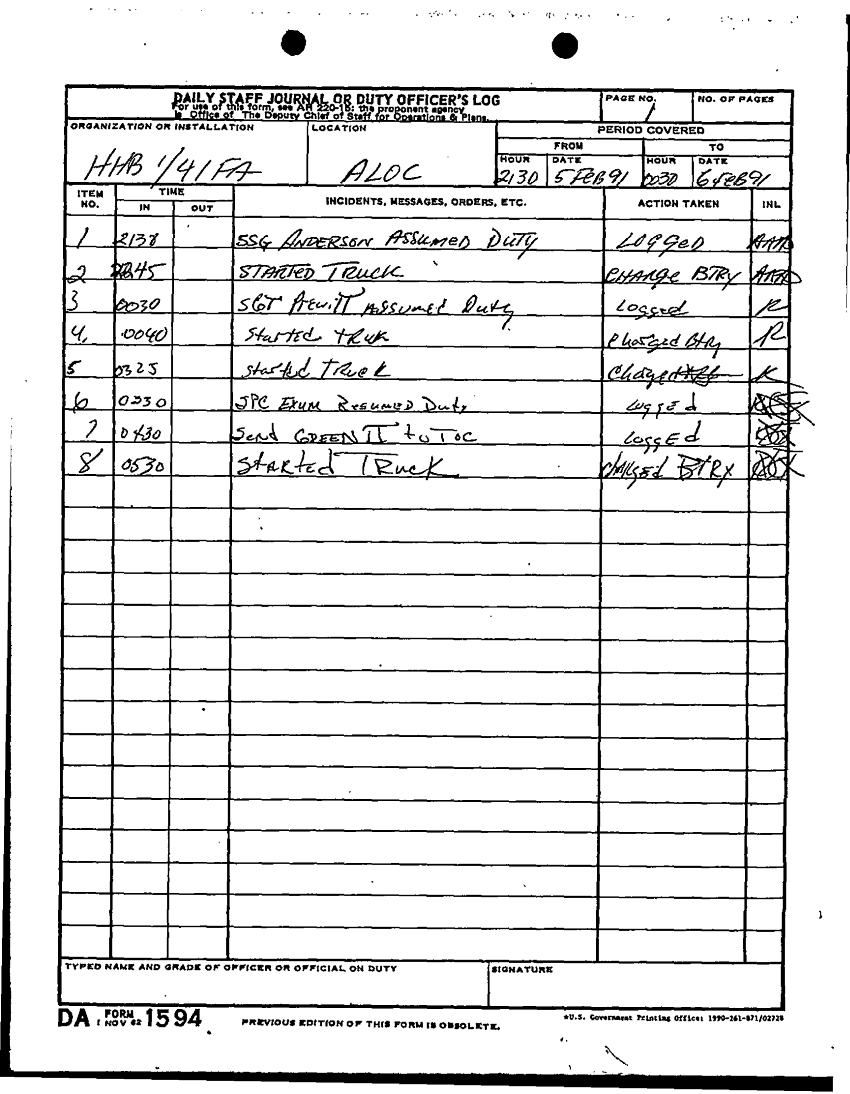 DAILY STAFF JOURNAL OR DUTY OFFICER'S LOG
For use of this form, see AR 220-15; the proponent agency
is Office of The Deputy Chief of Staff for Operations & Plans.
PAGE NO.
1
NO. OF PAGES
ORGANIZATION OR INSTALLATION
HHB 1/41 FA
LOCATION
ALOC
PERIOD COVERED
FROM TO
HOUR DATE HOUR DATE
2130 5 FEB 91 0030 6 FEB 91
ITEM NO. TIME INCIDENTS, MESSAGES, ORDERS, ETC. ACTION TAKEN INL
IN OUT
1 2138 SSG ANDERSON ASSUMED DUTY LOGGED
2 2245 STARTED TRUCK CHARGE BTRY
3 0030 SGT Prewitt ASSUMED Duty Logged R
4. 0040 Started TRUK Charged Btry R
5 0325 started TRUCK Charged
6 0330 SPC EXUM RESUMED Duty LOGGEd
7 0430 Send GREEN II to TOC LOGGEd
8 0530 STARTED TRUCK CHARGED BTRY
TYPED NAME AND GRADE OF OFFICER OR OFFICIAL ON DUTY
SIGNATURE
DA FORM 1 NOV 62 1594
PREVIOUS EDITION OF THIS FORM IS OBSOLETE.
*U.S. Government Printing Office: 1990-261-871/02728